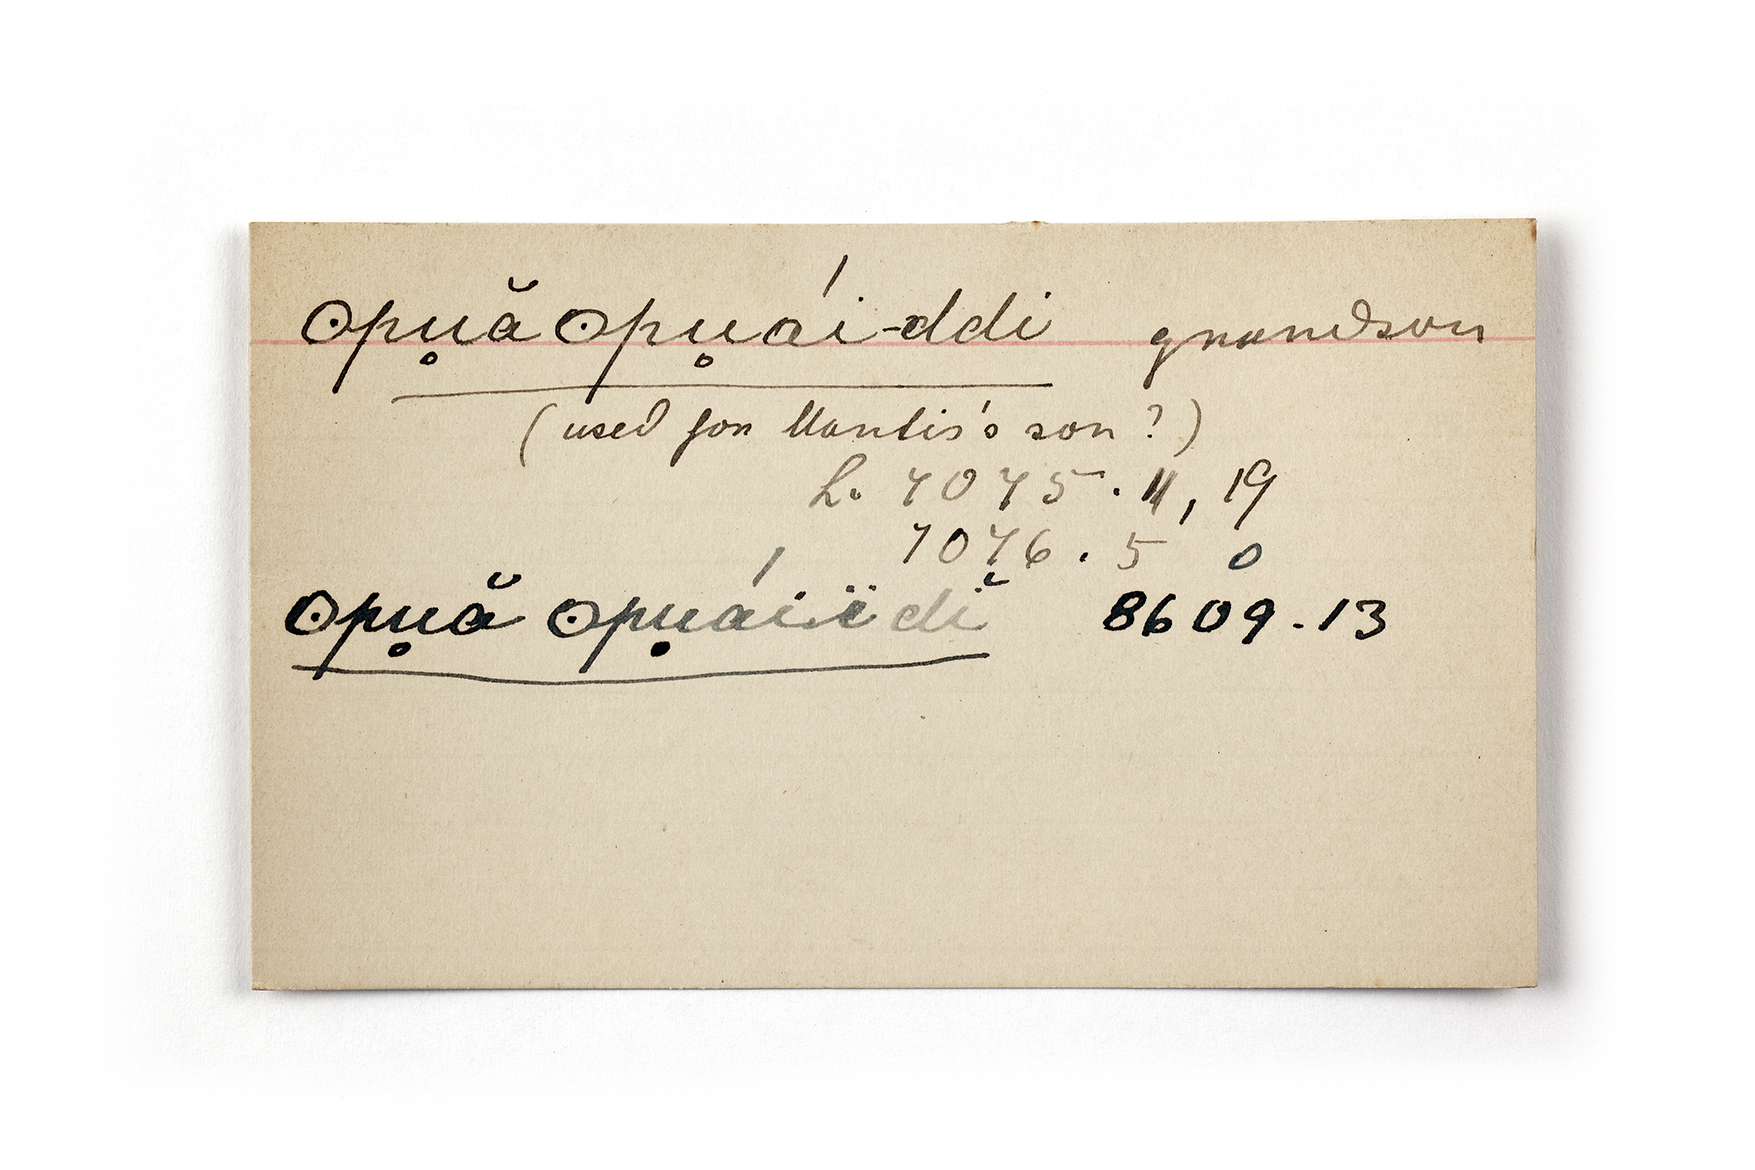 ʘpu̥ă ʘpu̥ái-ddi grandson
(used for Mantis's son?)
L. 7075. 11, 19
7076. 5 0
ʘpu̥ă ʘpu̥áïdĭ 8609.13